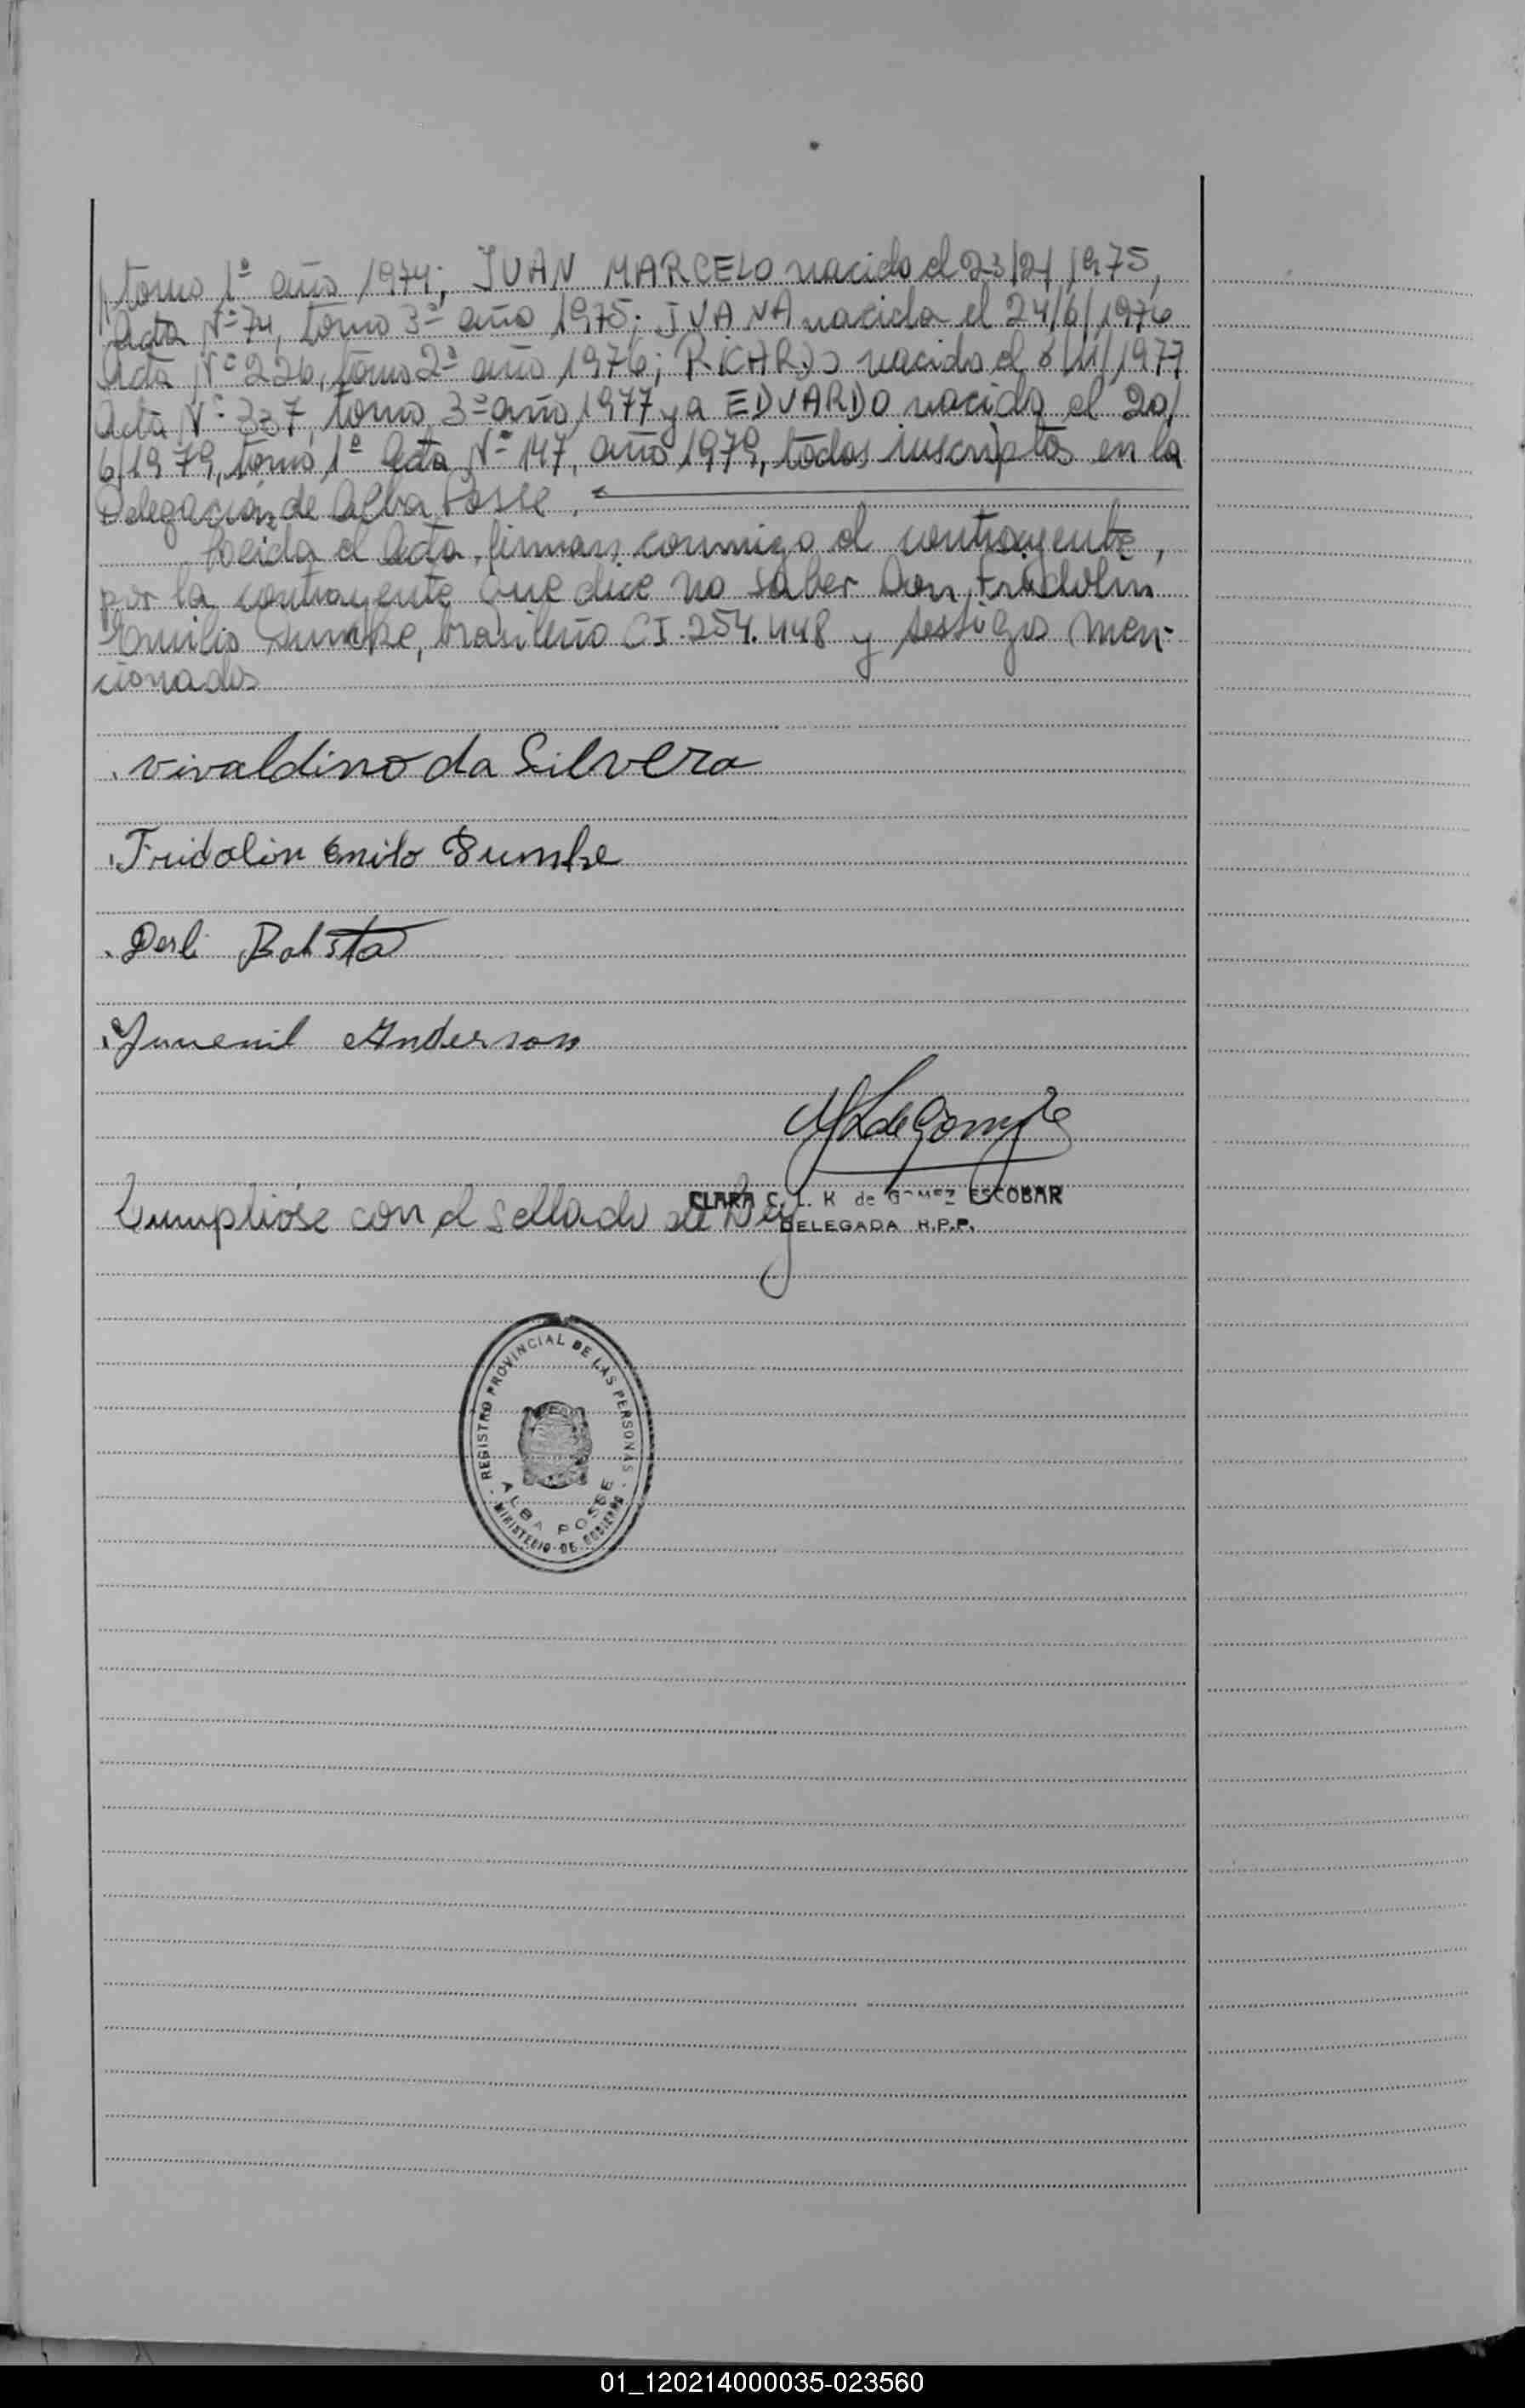 tomo 1º año 1974; JUAN MARCELO nacido el 23/2/1975,
Acta Nº 74, tomo 3º año 1975; JUANA nacida el 24/6/1976
Acta Nº 226, tomo 2º año 1976; RICHARD nacido el 8/11/1977
Acta Nº 337, tomo 3º año 1977 y a EDUARDO nacido el 20/
6/1979, tomo 1º Acta Nº 147, año 1979, todos inscriptos en la
Delegación de Alba Posse.
Leida el Acta, firman conmigo el contrayente,
por la contrayente que dice no saber Don Fridolin
Emilio, brasileño CI. 254.448 y testigos men-
cionados
vivaldino da Silvera
Fridolin Emilo
Derli Batista
Juvenil Anderson
CLARA C. L. K de GOMEZ ESCOBAR
Cumplióse con el sellado de Ley
DELEGADA R.P.P.
REGISTRO PROVINCIAL DE LAS PERSONAS
ALBA POSSE
MINISTERIO DE GOBIERNO
01_120214000035-023560